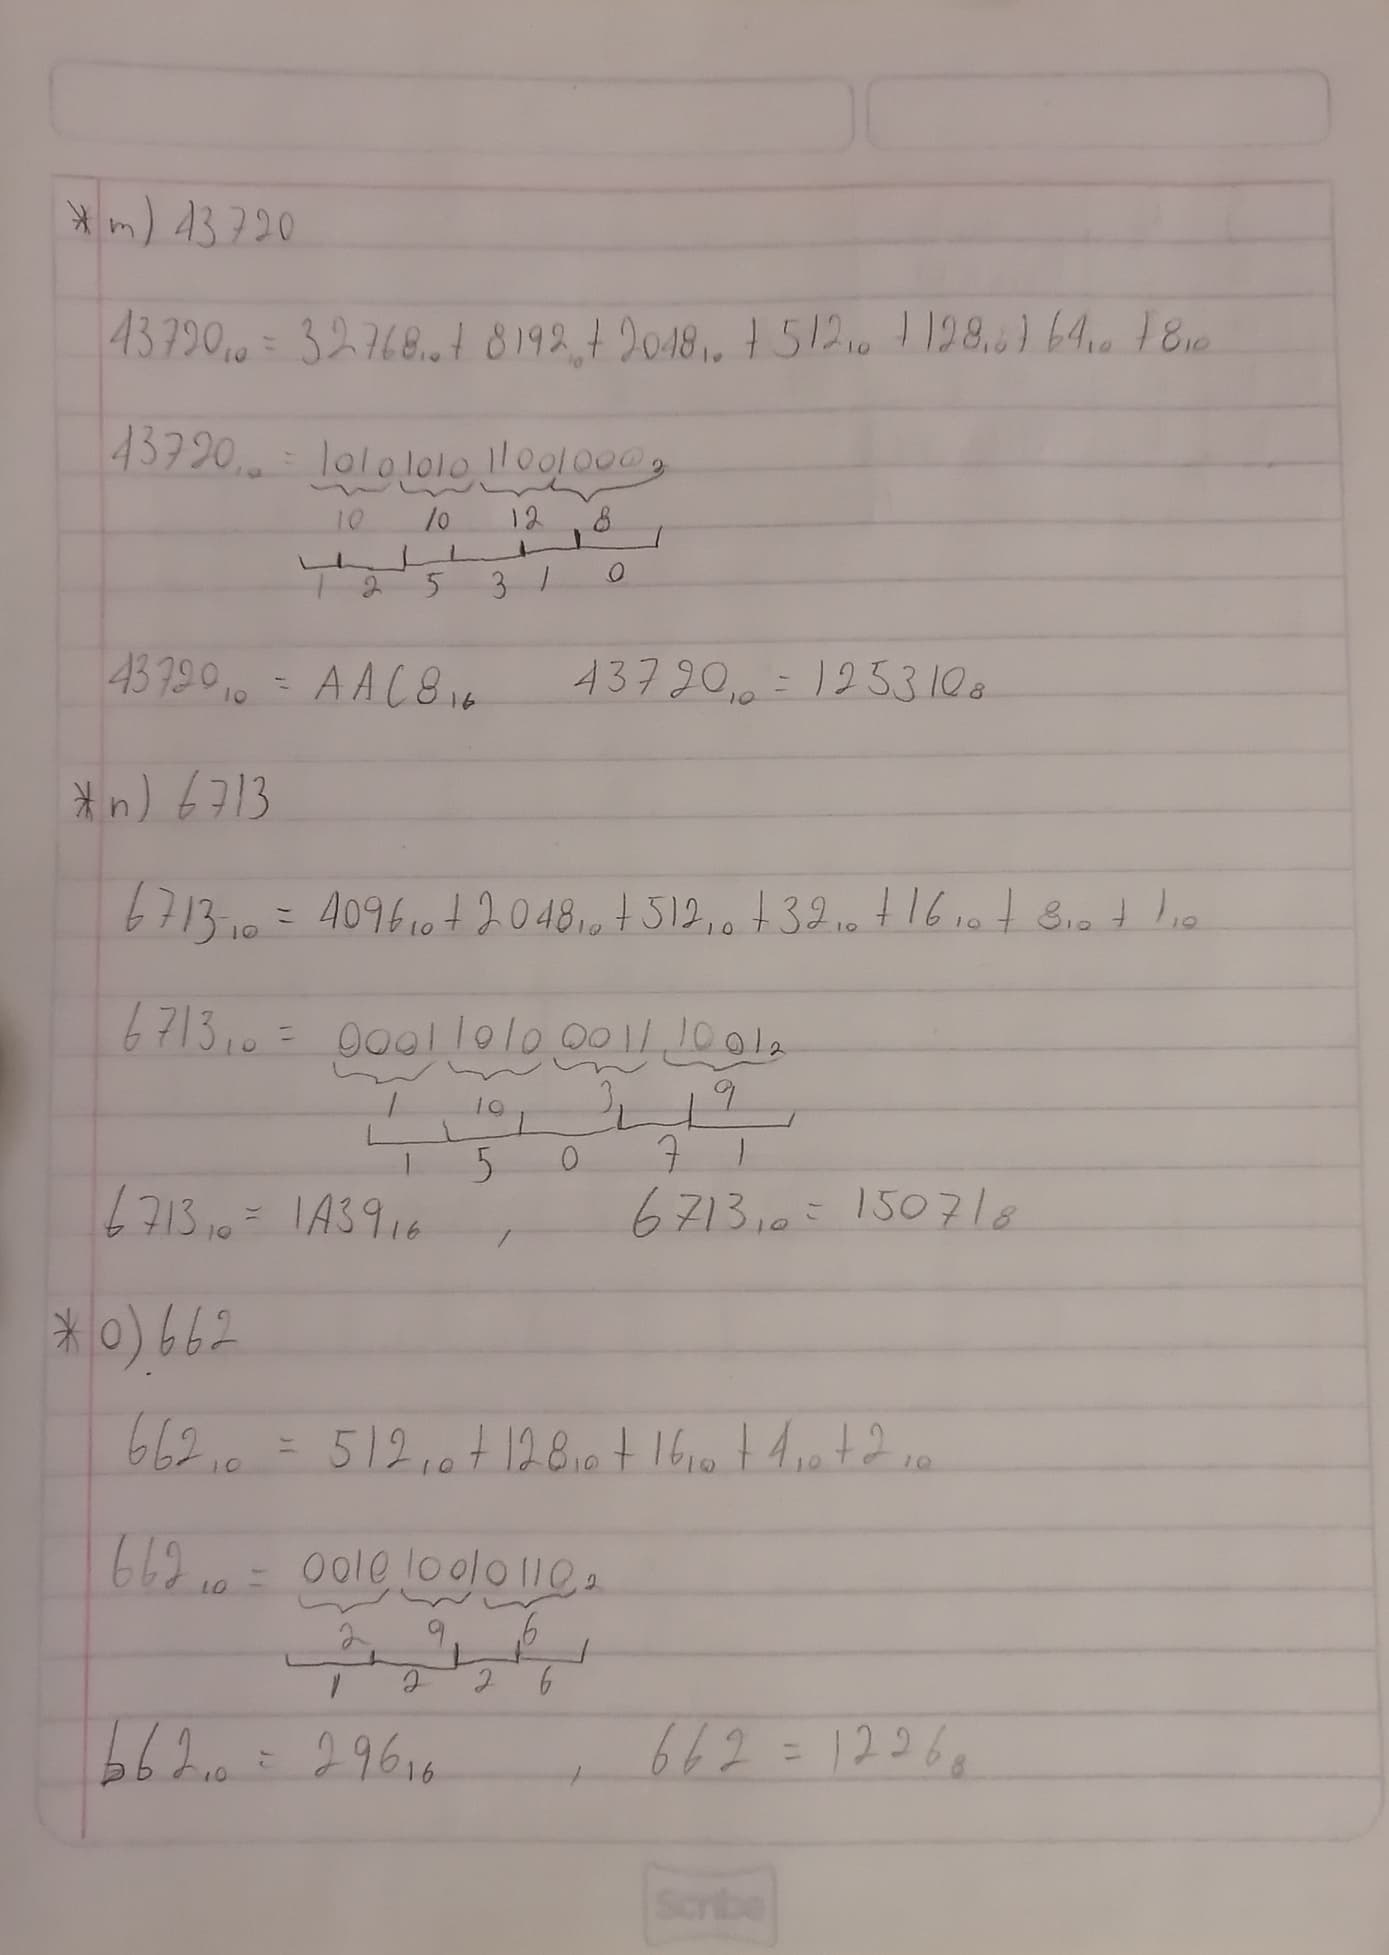 * m) 43720
43720₁₀ = 32768₁₀ + 8192₁₀ + 2048₁₀ + 512₁₀ + 128₁₀ + 64₁₀ + 8₁₀
43720₁₀ = 1010101011001000₂
10 10 12 8
1 2 5 3 1 0
43720₁₀ = AAC8₁₆ 43720₁₀ = 125310₈
* n) 6713
6713₁₀ = 4096₁₀ + 2048₁₀ + 512₁₀ + 32₁₀ + 16₁₀ + 8₁₀ + 1₁₀
6713₁₀ = 0001101000111001₂
1 10 3 9
1 5 0 7 1
6713₁₀ = 1A39₁₆ , 6713₁₀ = 15071₈
* o) 662
662₁₀ = 512₁₀ + 128₁₀ + 16₁₀ + 4₁₀ + 2₁₀
662₁₀ = 001010010110₂
2 9 6
1 2 2 6
662₁₀ = 296₁₆ , 662 = 1226₈
Scribe